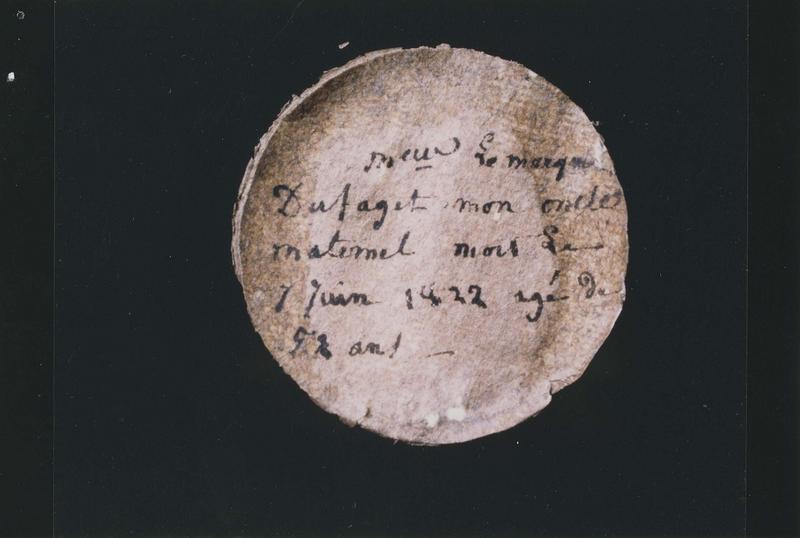 meur Le marquis
Dufaget mon oncle
maternel mort Le
7 Juin 1822 agé de
52 ans